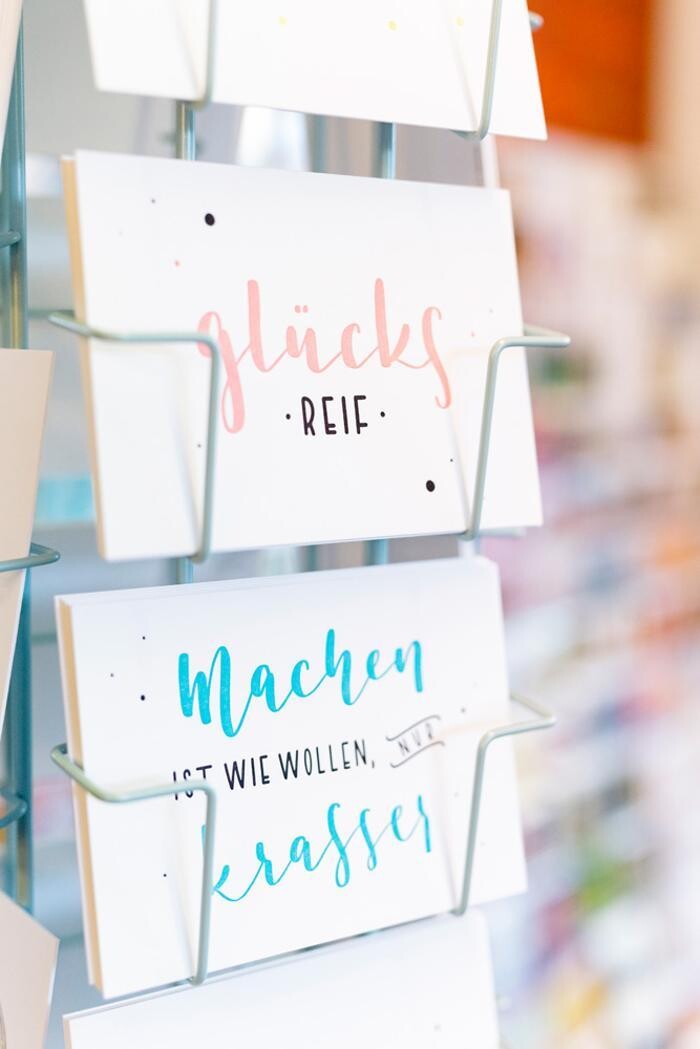 glücks
· REIF ·
Machen
IST WIE WOLLEN, NUR
krasser